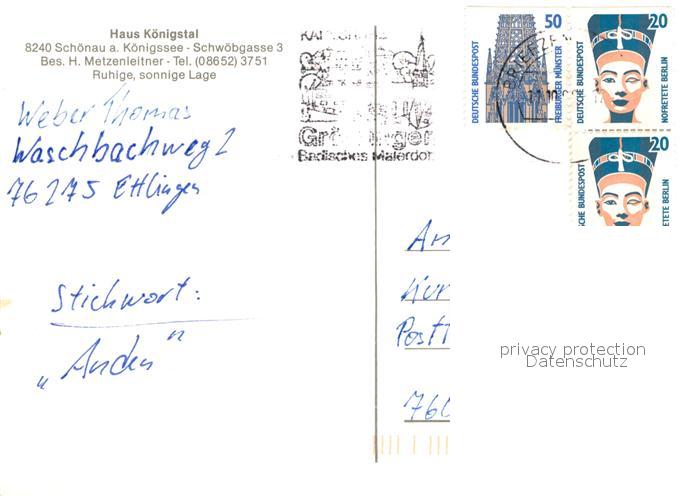 Haus Königstal
8240 Schönau a. Königssee - Schwöbgasse 3
Bes. H. Metzenleitner - Tel. (08652) 3751
Ruhige, sonnige Lage
Weber Thomas
Waschbachweg 2
76275 Ettlingen
Stichwort:
„Anden"
Badisches Malerdor
DEUTSCHE BUNDESPOST
50
FREIBURGER MÜNSTER
DEUTSCHE BUNDESPOST
20
NOFRETETE BERLIN
SCHE BUNDESPOST
20
ETETE BERLIN
An
Postf
760
privacy protection
Datenschutz